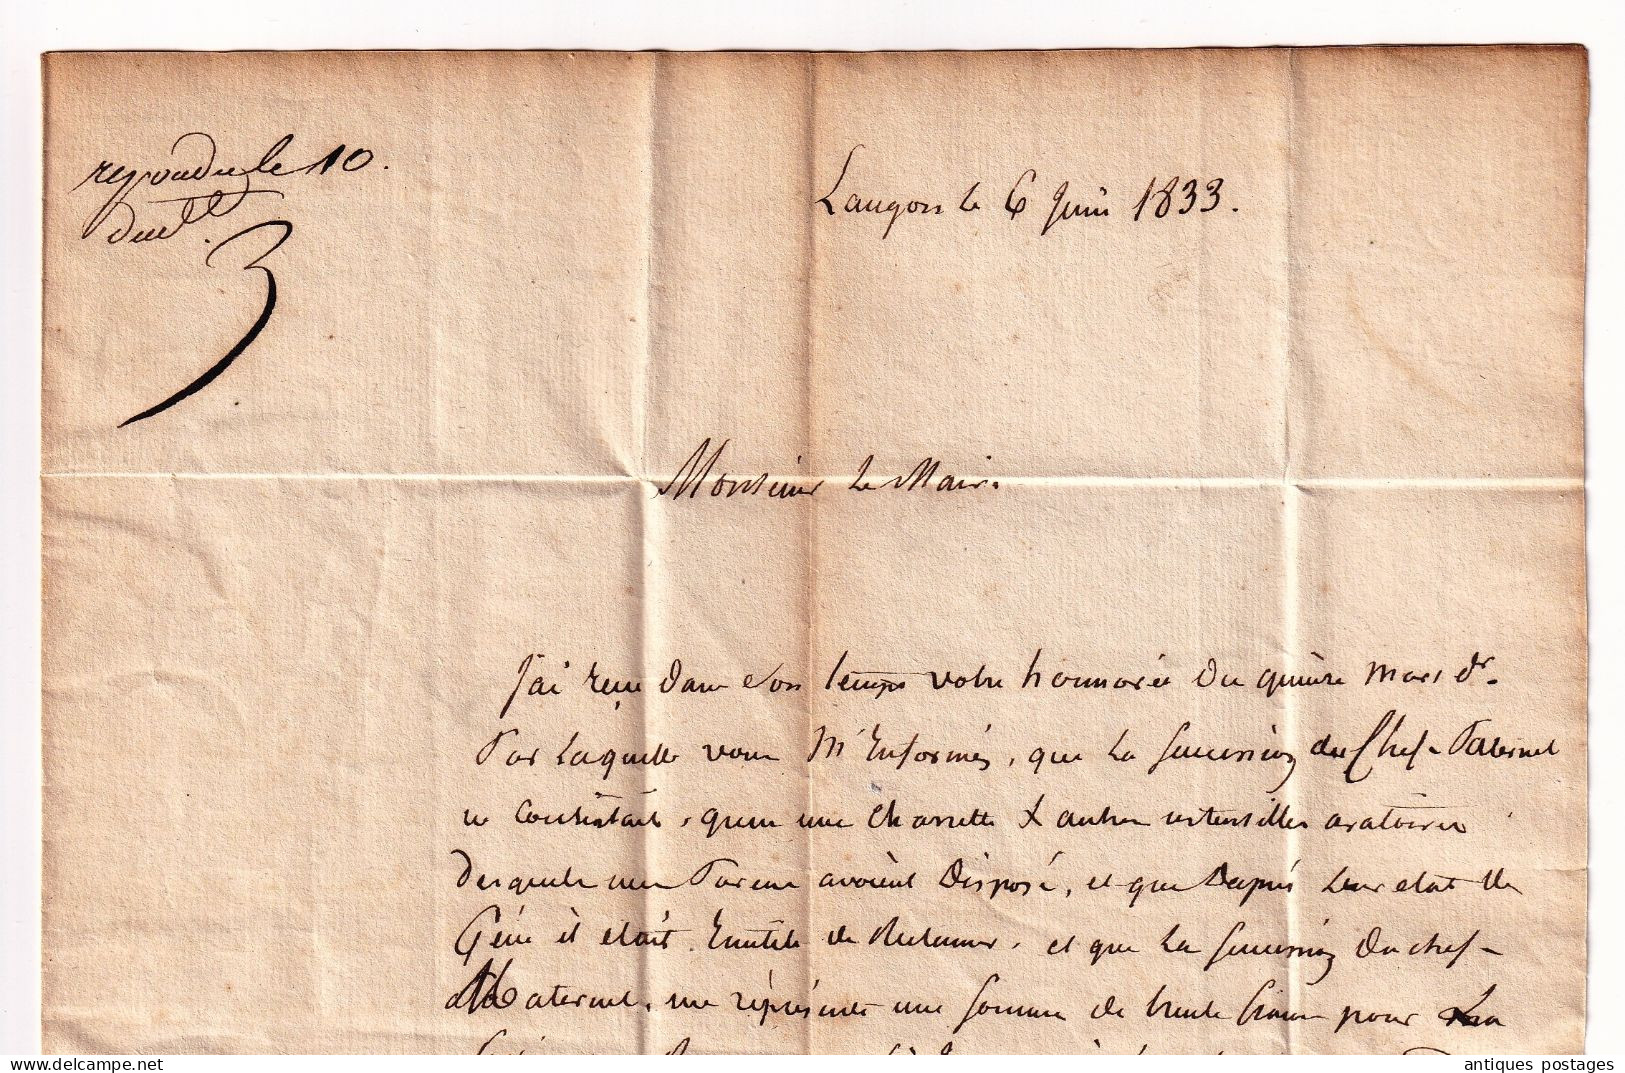 repondu le 10.
duct.
3
Langon le 6 Juin 1833.
Monsieur Le Maire.
J'ai reçu dans son temps votre honnorée du quinze Mars dr.
Par Laquelle vous M'Informés, que La Succession du Chef-Paternel
ne Consistait, qu'en une Charrette & autres ustensilles aratoires
desquels mes Parens avoient Disposé, et que D'après Leur etat de
Gêne il etait Inutile de Reclamer, et que La Succession Du chef-
Maternel, me réprésente une somme de trente francs pour
delcampe.net
antiques postages